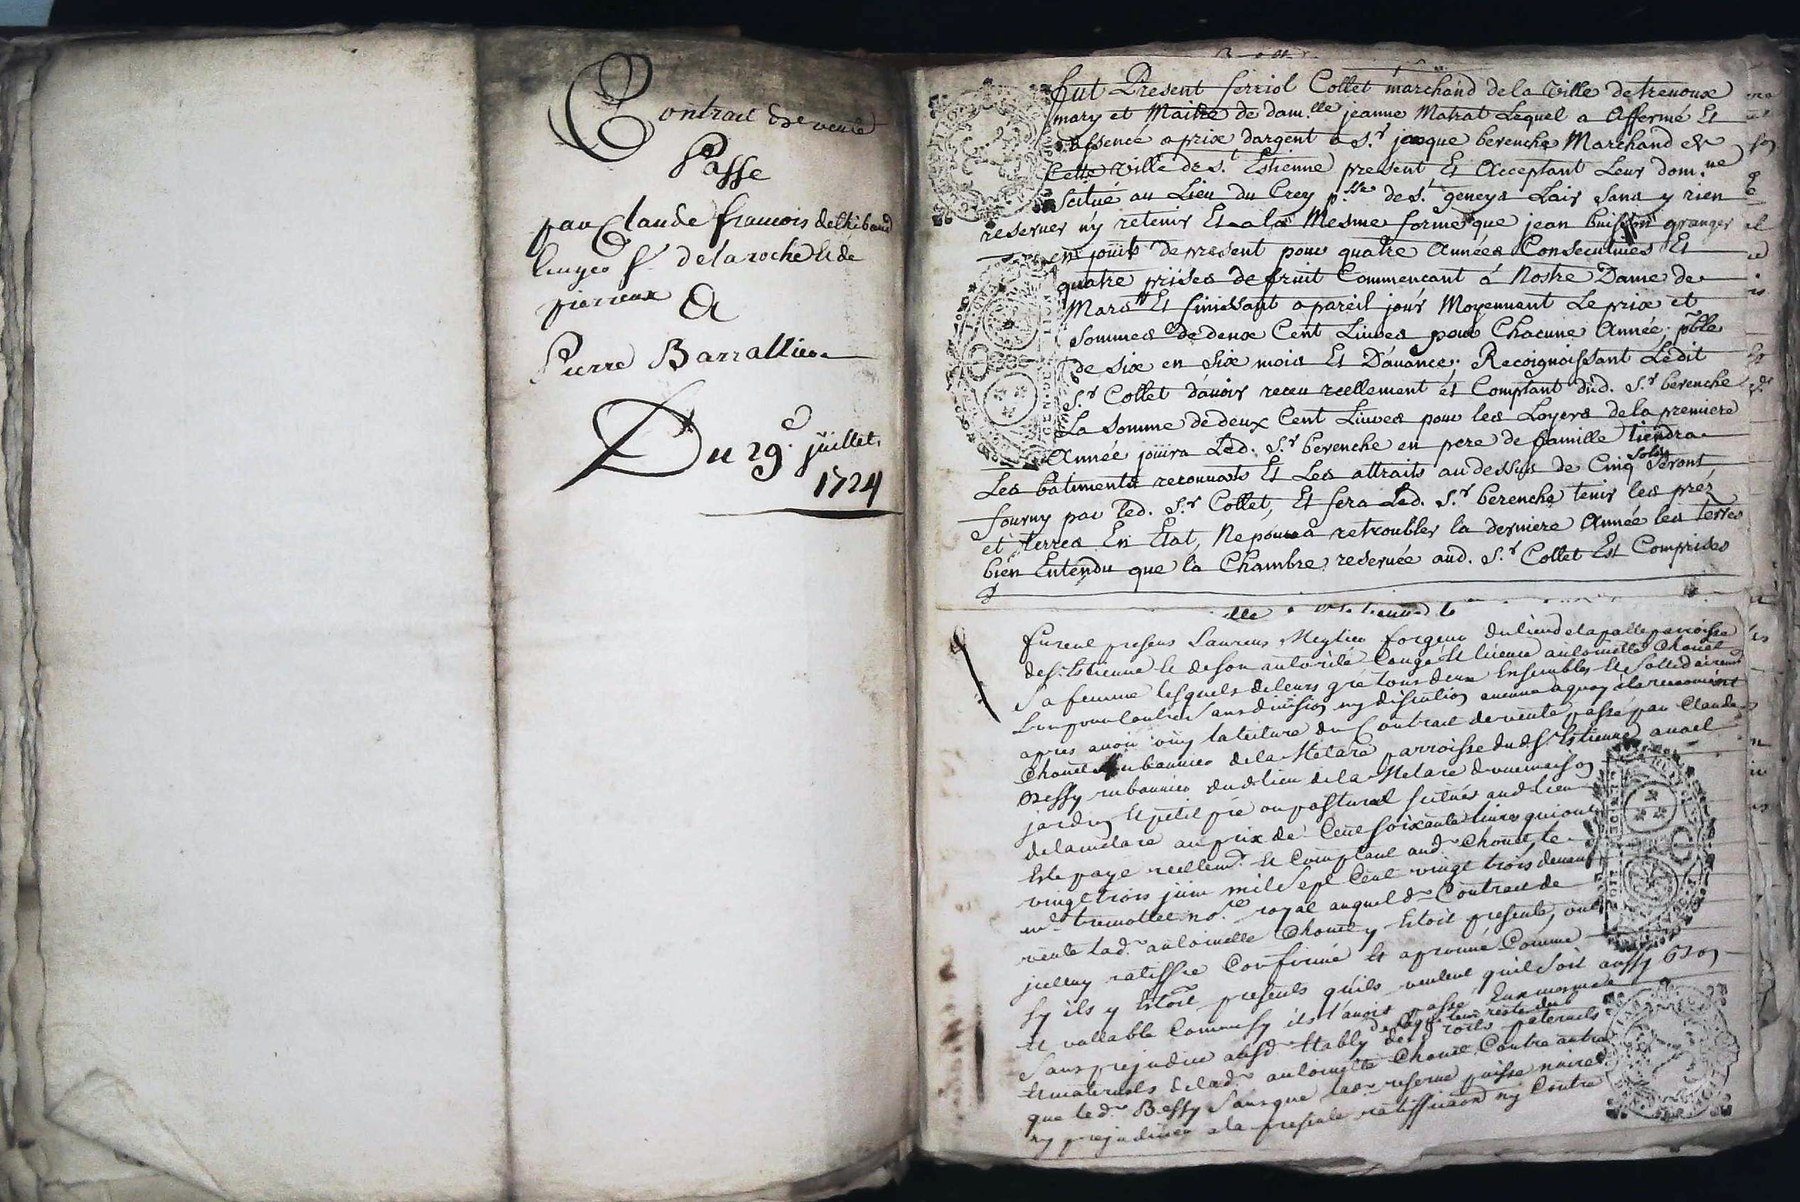 Contrait de vente
Passe
par Claude francois dethibaud
Sr. delaroche et de
pierreux A
Pierre Barrallier
Du 29e. juillet
1724
fut Present ferriol Collet marchand de la Ville de trevoux
mary et Maitre de dam.lle jeanne Matrat Lequel a Affermé Et
Assencé a prix dargent a S.r jacque berenche Marchand de
Cette Ville de S.t Estienne present Et Acceptant Leur dom.ne
Scitué au Lieu du Crey p.sse de S.t geneys Lair Sans y rien
reserver ny retenir Et a La Mesme forme que jean buisson granger
en jouit de present pour quatre Années Consecutives Et
quatre prises de fruit Commencant á Nostre Dame de
Mars Et finissant a pareil jour Moyennant Le prix et
Sommes de deux Cent Livres pour Chacune Année p.ble
de six en six mois Et D'avance; Recoignoissant Ledit
S.r Collet davoir receu reellement et Comptant dud. S.r berenche
La somme de deux Cent Livres pour les Loyers de la premiere
Année joüira Led. S.r berenche en pere de famille tiendra
Les batiments reconnats Et Les attraits au dessus de Cinq Sols Seront
fourny par led. S.r Collet, Et fera Led. S.r berenche tenir les prez
et terres En Etat, Ne poura retroubler la derniere Année les terres
bien Entendu que la Chambre reservée aud. S.r Collet Est Comprises
furent presens Laurens Meylieu forgeur du lieu de la palle parroisse
de St. Estienne et de son autorité Congé Et licence antoinette Chovet
Sa femme lesquels de leurs gré tous deux Ensembles Et Sollidairement
Lun pour lautre Sans division ny discution aucune a quoy ils renoncent
apres avoir ouy la lecture du Contrait de vente passé par Claude
Chovet rubannier de la Metare parroisse dud St. Estienne a
Bessy rubannier dud lieu de la Metare dune maison
jardin Et petit pré ou pastural scitués aud lieu
de la metare au prix de Cent soixante livres qui ont
Esté payé reellem.t Et Comptant aud. Chovet, le
vingt trois juin mil Sept Cent vingt trois devant
m.e tremollet no.re royal auquel d. Contrait de
vente lad. antoinette Chovet y Estoit presente, ont
icelluy ratiffié Confirmé Et aprouvé Comme
Sy ils y Estoit presents quils veulent quil Soit aussy bon
Et vallable Comme Sy ils lavois passé Eux mesmes
Sans prejudice
Et maternels de lad. antoinette Chovet Contre autre
que led. Bessy Sans que lad. reserve puisse nuire
ny prejudicier a la presente ratiffication ny Contre